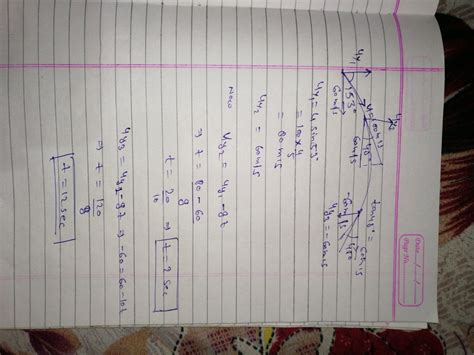 Date: / /
Page No.
uy₁
53°
60m/s
45°
60m/s
45°
uy₃ = -60m/s
60m/s
uy₁ = u sin53°
= 100 × 4/5
= 80m/s
uy₂ = 60m/s
Now
uy₂ = uy₁ - gt
⇒ t = 80-60/g
t = 20/10 ⇒ t = 2 sec
uy₃ = uy₂ - gt ⇒ -60 = 60 - 10t
⇒ t = 120/g
t = 12 sec